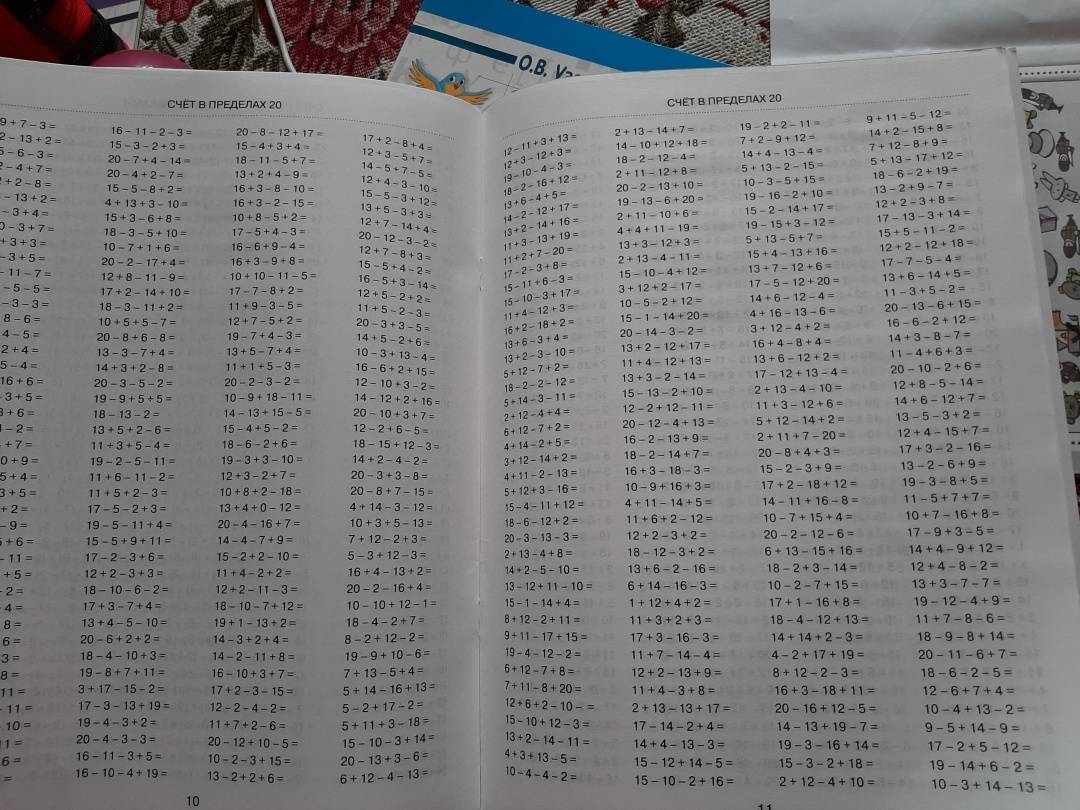 О.В. Уз
СЧЁТ В ПРЕДЕЛАХ 20
9 + 7 – 3 =
2 – 13 + 2 =
5 – 6 – 3 =
2 – 4 + 7 =
2 + 2 – 8 =
– 13 + 2 =
– 3 + 4 =
0 – 3 + 7 =
+ 3 + 3 =
– 3 + 5 =
– 11 – 7 =
– 5 – 5 =
– 3 – 3 =
8 – 6 =
4 – 5 =
2 + 4 =
5 – 4 =
16 + 6 =
3 + 5 =
3 + 6 =
– 2 =
+ 7 =
0 + 9 =
5 + 4 =
3 + 5 =
+ 2 =
– 9 =
5 + 6 =
– 11 =
+ 5 =
– 2 =
4 =
8 =
6 =
3 =
8 =
11 =
– 11 =
10 =
1 =
6 =
=
16 – 11 – 2 – 3 =
15 – 3 – 2 + 3 =
20 – 7 + 4 – 14 =
20 – 4 + 2 – 7 =
15 – 5 – 8 + 2 =
4 + 13 + 3 – 10 =
15 + 3 – 6 + 8 =
18 – 3 – 5 + 10 =
10 – 7 + 1 + 6 =
20 – 2 – 17 + 4 =
12 + 8 – 11 – 9 =
17 + 2 – 14 + 10 =
18 – 3 – 11 + 2 =
10 + 5 + 5 – 7 =
20 – 8 + 6 – 8 =
13 – 3 – 7 + 4 =
14 + 3 + 2 – 8 =
20 – 3 – 5 – 2 =
19 – 9 + 5 + 5 =
18 – 13 – 2 =
13 + 5 + 2 – 6 =
11 + 3 + 5 – 4 =
19 – 2 – 5 – 11 =
11 + 6 – 11 – 2 =
11 + 5 + 2 – 3 =
17 – 5 – 2 + 3 =
19 – 5 – 11 + 4 =
15 – 5 + 9 + 11 =
17 – 2 – 3 + 6 =
12 + 2 – 3 + 3 =
18 – 10 – 6 – 2 =
17 + 3 – 7 + 4 =
13 + 4 – 5 – 10 =
20 – 6 + 2 + 2 =
18 – 4 – 10 + 3 =
19 – 8 + 7 + 11 =
3 + 17 – 15 – 2 =
17 – 3 – 13 + 19 =
19 – 4 – 3 + 2 =
20 – 4 – 3 – 3 =
16 – 11 – 3 + 5 =
16 – 10 – 4 + 19 =
20 – 8 – 12 + 17 =
15 – 4 + 3 + 4 =
18 – 11 – 5 + 7 =
13 + 2 + 4 – 9 =
16 + 3 – 8 – 10 =
16 + 3 – 2 – 15 =
10 + 8 – 5 + 2 =
17 – 5 + 4 – 3 =
16 – 6 + 9 – 4 =
16 + 3 – 9 + 8 =
10 + 10 – 11 – 5 =
17 – 7 – 8 + 2 =
11 + 9 – 3 – 5 =
12 + 7 – 5 + 2 =
19 – 7 + 4 – 3 =
13 + 5 – 7 + 4 =
11 + 1 + 5 – 3 =
20 – 2 – 3 – 2 =
10 – 9 + 18 – 11 =
14 – 13 + 15 – 5 =
15 – 4 + 5 – 2 =
18 – 6 – 2 + 6 =
19 – 3 + 3 – 10 =
12 + 3 – 2 + 7 =
10 + 8 + 2 – 18 =
13 + 4 + 0 – 12 =
20 – 4 – 16 + 7 =
14 – 4 – 7 + 9 =
15 – 2 + 2 – 10 =
11 + 4 – 2 + 2 =
12 + 2 – 11 – 3 =
18 – 10 – 7 + 12 =
19 + 1 – 13 + 2 =
14 – 3 + 2 + 4 =
14 – 2 – 11 + 8 =
16 – 10 + 3 + 7 =
17 + 2 – 3 – 15 =
12 – 2 – 4 – 2 =
11 + 7 + 2 – 6 =
20 – 12 + 10 – 5 =
10 – 2 – 3 + 15 =
13 – 2 + 2 + 6 =
17 + 2 – 8 + 4 =
12 + 3 – 5 + 7 =
14 – 5 + 7 – 5 =
12 + 4 – 3 – 10 =
15 – 5 – 3 + 12 =
13 + 5 – 3 + 3 =
12 + 7 – 14 + 4 =
20 – 12 – 3 – 2 =
12 + 7 – 8 + 3 =
15 – 5 + 4 – 2 =
16 – 5 + 3 – 14 =
12 + 5 – 2 + 2 =
11 + 5 – 2 – 3 =
20 – 3 + 3 – 5 =
14 + 5 – 2 + 6 =
10 – 3 + 13 – 4 =
16 – 6 + 2 + 15 =
12 – 10 + 3 – 2 =
14 – 12 + 2 + 16 =
20 – 10 + 3 + 7 =
12 – 2 + 6 – 5 =
18 – 15 + 12 – 3 =
14 + 2 – 4 – 2 =
20 – 3 + 3 – 8 =
20 – 8 + 7 – 15 =
4 + 14 – 3 – 12 =
10 + 3 + 5 – 13 =
7 + 12 – 2 + 3 =
5 – 3 + 12 – 3 =
16 + 4 – 13 + 2 =
20 – 2 – 16 + 4 =
10 – 10 + 12 – 1 =
18 – 4 – 2 + 7 =
8 – 2 + 12 – 2 =
19 – 9 + 10 – 6 =
7 + 13 – 5 + 4 =
5 + 14 – 16 + 13 =
5 – 2 + 17 – 2 =
5 + 11 + 3 – 18 =
15 – 10 – 3 + 14 =
20 – 13 + 3 – 6 =
6 + 12 – 4 – 13 =
10
СЧЁТ В ПРЕДЕЛАХ 20
12 – 11 + 3 + 13 =
12 + 3 – 12 + 3 =
19 – 10 – 4 – 3 =
18 – 2 – 16 + 12 =
13 + 6 – 4 + 5 =
14 – 2 – 12 + 17 =
13 + 2 – 14 + 16 =
11 + 3 – 13 + 19 =
11 + 2 + 7 – 20 =
17 – 2 – 3 + 8 =
15 – 11 + 6 – 3 =
15 – 10 – 3 + 17 =
11 + 4 – 12 + 3 =
16 + 2 – 18 + 2 =
13 + 6 – 3 + 4 =
13 + 2 – 3 – 10 =
5 + 12 – 7 + 2 =
18 – 2 – 2 – 12 =
5 + 14 – 3 – 11 =
2 + 12 – 4 + 4 =
6 + 12 – 7 + 2 =
4 + 14 – 2 + 5 =
3 + 12 – 14 + 2 =
4 + 11 – 2 – 13 =
5 + 12 + 3 – 16 =
15 – 4 – 11 + 12 =
18 – 6 – 12 + 2 =
20 – 3 – 13 – 3 =
2 + 13 – 4 + 8 =
14 + 2 – 5 – 10 =
13 – 12 + 11 – 10 =
15 – 1 – 14 + 4 =
8 + 12 – 2 + 11 =
9 + 11 – 17 + 15 =
19 – 4 – 12 – 2 =
6 + 12 – 7 + 8 =
7 + 11 – 8 + 20 =
12 + 6 + 2 – 10 – =
15 – 10 + 12 – 3 =
13 + 2 – 14 – 11 =
4 + 3 + 13 – 5 =
10 – 4 – 4 – 2 =
2 + 13 – 14 + 7 =
14 – 10 + 12 + 18 =
18 – 2 – 12 – 4 =
2 + 11 – 12 + 8 =
20 – 2 – 13 + 10 =
19 – 13 – 6 + 20 =
2 + 11 – 10 + 6 =
4 + 4 + 11 – 19 =
13 + 3 – 12 + 3 =
2 + 13 – 4 – 11 =
15 – 10 – 4 + 12 =
3 + 12 + 2 – 17 =
10 – 5 – 2 + 12 =
15 – 1 – 14 + 20 =
20 – 14 – 3 – 2 =
13 + 2 – 12 + 17 =
11 + 4 – 12 + 13 =
13 + 3 – 2 – 14 =
15 – 13 – 2 + 10 =
12 – 2 + 12 – 11 =
20 – 12 – 4 + 13 =
16 – 2 – 13 + 9 =
18 – 2 – 14 + 7 =
16 + 3 – 18 – 3 =
10 – 9 + 16 + 3 =
4 + 11 – 14 + 5 =
11 + 6 + 2 – 12 =
12 + 2 – 3 + 2 =
18 – 12 – 3 + 2 =
13 + 6 – 2 – 16 =
6 + 14 – 16 – 3 =
1 + 12 + 4 + 2 =
11 + 3 + 2 + 3 =
17 + 3 – 16 – 3 =
11 + 7 – 14 – 4 =
12 + 2 – 13 + 9 =
11 + 4 – 3 + 8 =
2 + 13 – 13 + 17 =
17 – 14 – 2 + 4 =
14 + 4 – 13 – 3 =
15 – 12 + 14 – 5 =
15 – 10 – 2 + 16 =
19 – 2 + 2 – 11 =
7 + 2 – 9 + 12 =
14 + 4 – 13 – 4 =
5 + 13 – 2 – 15 =
10 – 3 – 5 + 15 =
19 – 16 – 2 + 10 =
15 – 2 – 14 + 17 =
19 – 15 + 3 – 12 =
5 + 13 – 5 + 7 =
15 + 4 – 13 + 16 =
13 + 7 – 12 + 6 =
17 – 5 – 12 + 20 =
14 + 6 – 12 – 4 =
4 + 16 – 13 – 6 =
3 + 12 – 4 + 2 =
16 + 4 – 8 + 4 =
13 + 6 – 12 + 2 =
17 – 12 + 13 – 4 =
2 + 13 – 4 – 10 =
11 + 3 – 12 + 6 =
5 + 12 – 14 + 2 =
2 + 11 + 7 – 20 =
20 – 8 + 4 + 3 =
15 – 2 – 3 + 9 =
17 + 2 – 18 + 12 =
14 – 11 + 16 – 8 =
10 – 7 + 15 + 4 =
20 – 2 – 12 – 6 =
6 + 13 – 15 + 16 =
18 – 2 + 3 – 14 =
10 – 2 – 7 + 15 =
17 + 1 – 16 + 8 =
18 – 4 – 12 + 13 =
14 + 14 + 2 – 3 =
4 – 2 + 17 + 19 =
8 + 12 – 2 – 3 =
16 + 3 – 18 + 11 =
20 – 16 + 12 – 5 =
14 – 13 + 19 – 7 =
19 – 3 – 16 + 14 =
15 – 3 – 2 + 18 =
2 + 12 – 4 + 10 =
9 + 11 – 5 – 12 =
14 + 2 – 15 + 8 =
7 + 12 – 8 + 9 =
5 + 13 – 17 + 12 =
18 – 6 – 2 + 19 =
13 – 2 + 9 – 7 =
12 + 2 – 3 + 8 =
17 – 13 – 3 + 14 =
15 + 5 – 11 – 2 =
12 + 2 – 12 + 18 =
17 – 7 – 5 – 4 =
13 + 6 – 14 + 5 =
11 – 3 + 5 – 2 =
20 – 13 – 6 + 15 =
16 – 6 – 2 + 12 =
14 + 3 – 8 – 7 =
11 – 4 + 6 + 3 =
20 – 10 – 2 + 6 =
12 + 8 – 5 – 14 =
14 + 6 – 12 + 7 =
13 – 5 – 3 + 2 =
12 + 4 – 15 + 7 =
17 + 3 – 2 – 16 =
13 – 2 – 6 + 9 =
19 – 3 – 8 + 5 =
11 – 5 + 7 + 7 =
10 + 7 – 16 + 8 =
17 – 9 + 3 – 5 =
14 + 4 – 9 + 12 =
12 + 4 – 8 – 2 =
13 + 3 – 7 – 7 =
19 – 12 – 4 + 9 =
11 + 7 – 8 – 6 =
18 – 9 – 8 + 14 =
20 – 11 – 6 + 7 =
18 – 6 – 2 – 5 =
12 – 6 + 7 + 4 =
10 – 4 + 13 – 2 =
9 – 5 + 14 – 9 =
17 – 2 + 5 – 12 =
19 – 14 + 6 – 2 =
10 – 3 + 14 – 13 =
11